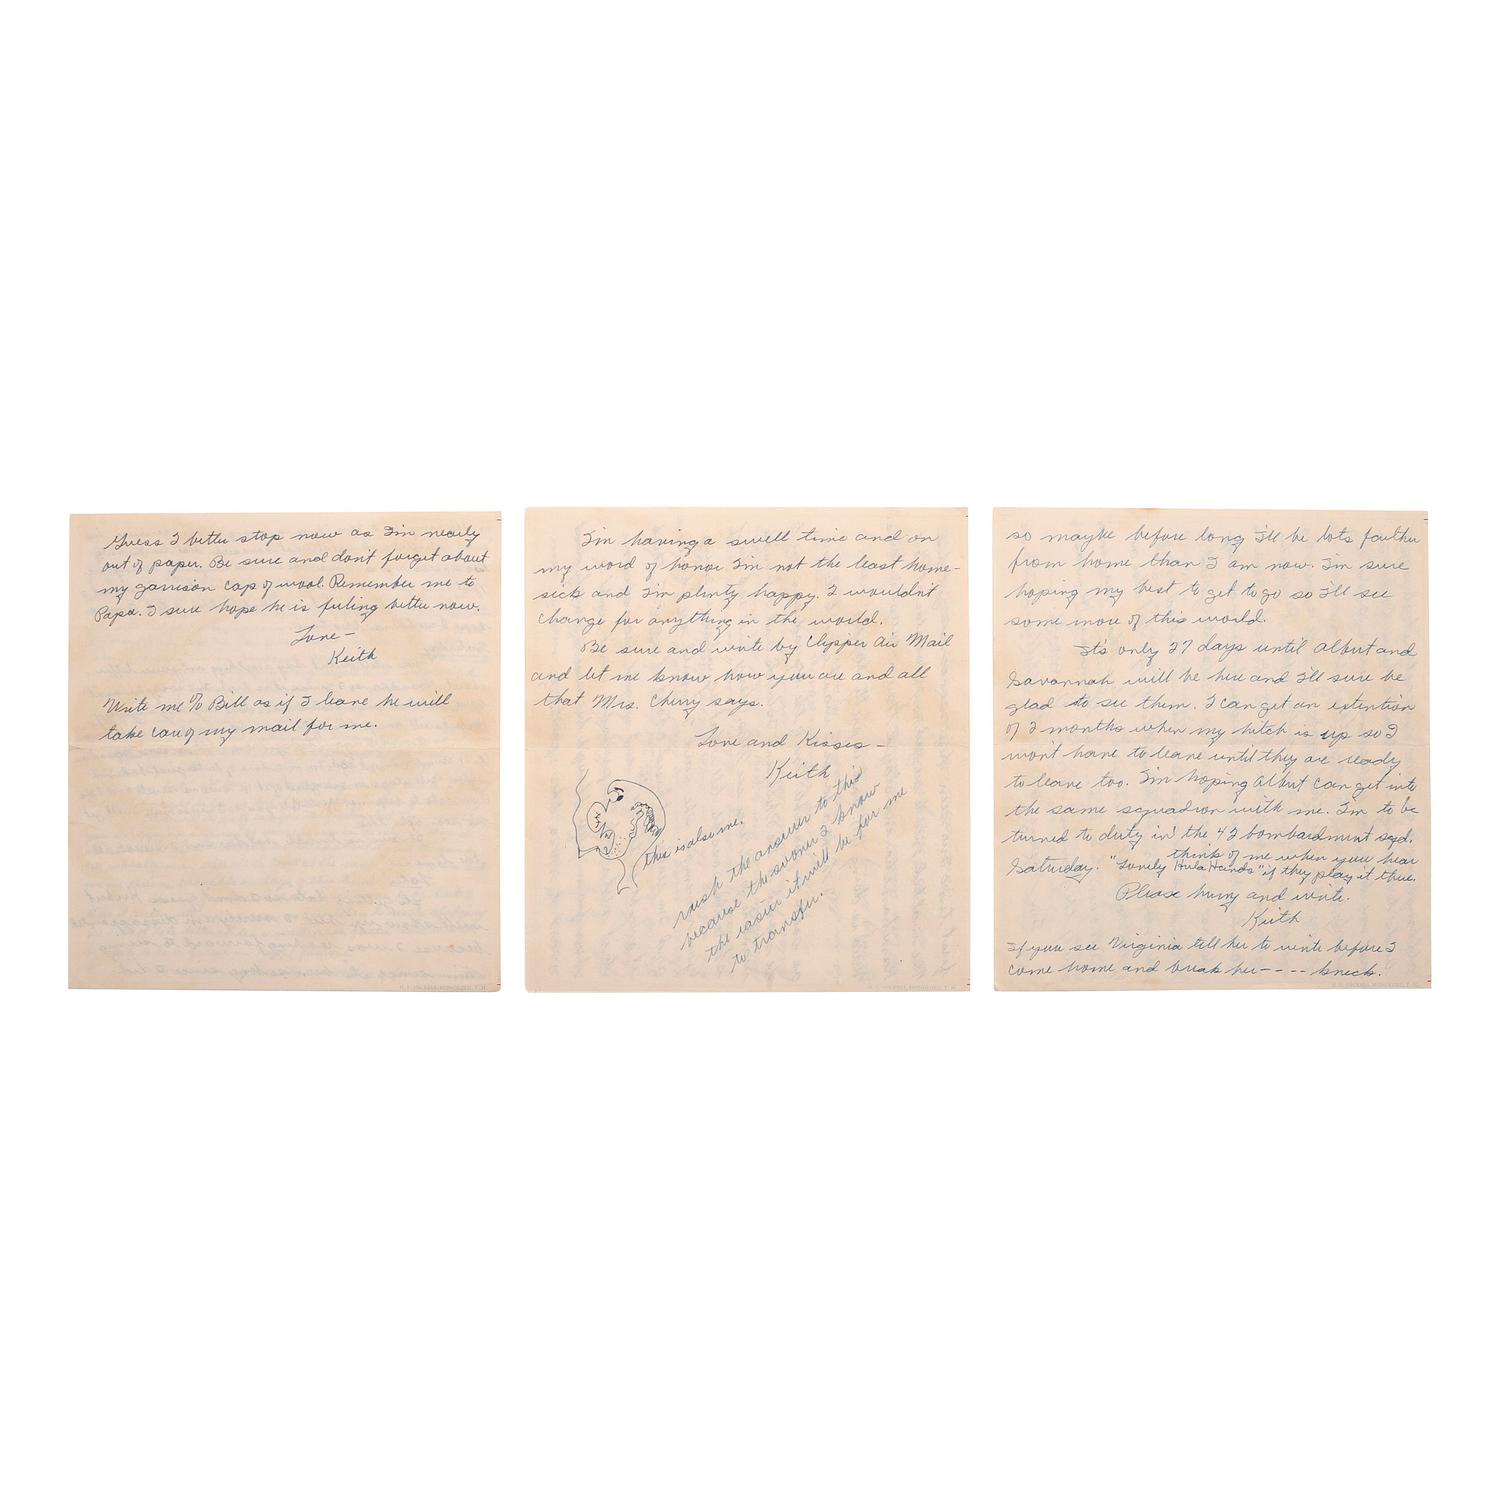 Guess I better stop now as I'm nearly
out of paper. Be sure and don't forget about
my garrison cap of wool. Remember me to
Papa. I sure hope he is feeling better now.
Love –
Keith
Write me % Bill as if I leave he will
take care of my mail for me.
I'm having a swell time and on
my word of honor I'm not the least home-
sick and I'm plenty happy. I wouldn't
change for anything in the world.
Be sure and write by Clipper Air Mail
and let me know how you are and all
that Mrs. Cherry says.
Love and Kisses –
Keith
this is also me.
rush the answer to this
because the sooner I know
the easier it will be for me
to transfer.
so maybe before long I'll be lots farther
from home than I am now. I'm sure
hoping my best to get to go so I'll see
some more of this world.
It's only 27 days until Albut and
Savannah will be here and I'll sure be
glad to see them. I can get an extention
of 2 months when my hitch is up so I
won't have to leave until they are ready
to leave too. I'm hoping Albut can get into
the same squadron with me. I'm to be
turned to duty in the 42 bombardment sqd.
Saturday. think of me when you hear
"Lovely Hula Hands" if they play it there.
Please hurry and write.
Keith
If you see Virginia tell her to write before I
come home and break her – – – – kneck.